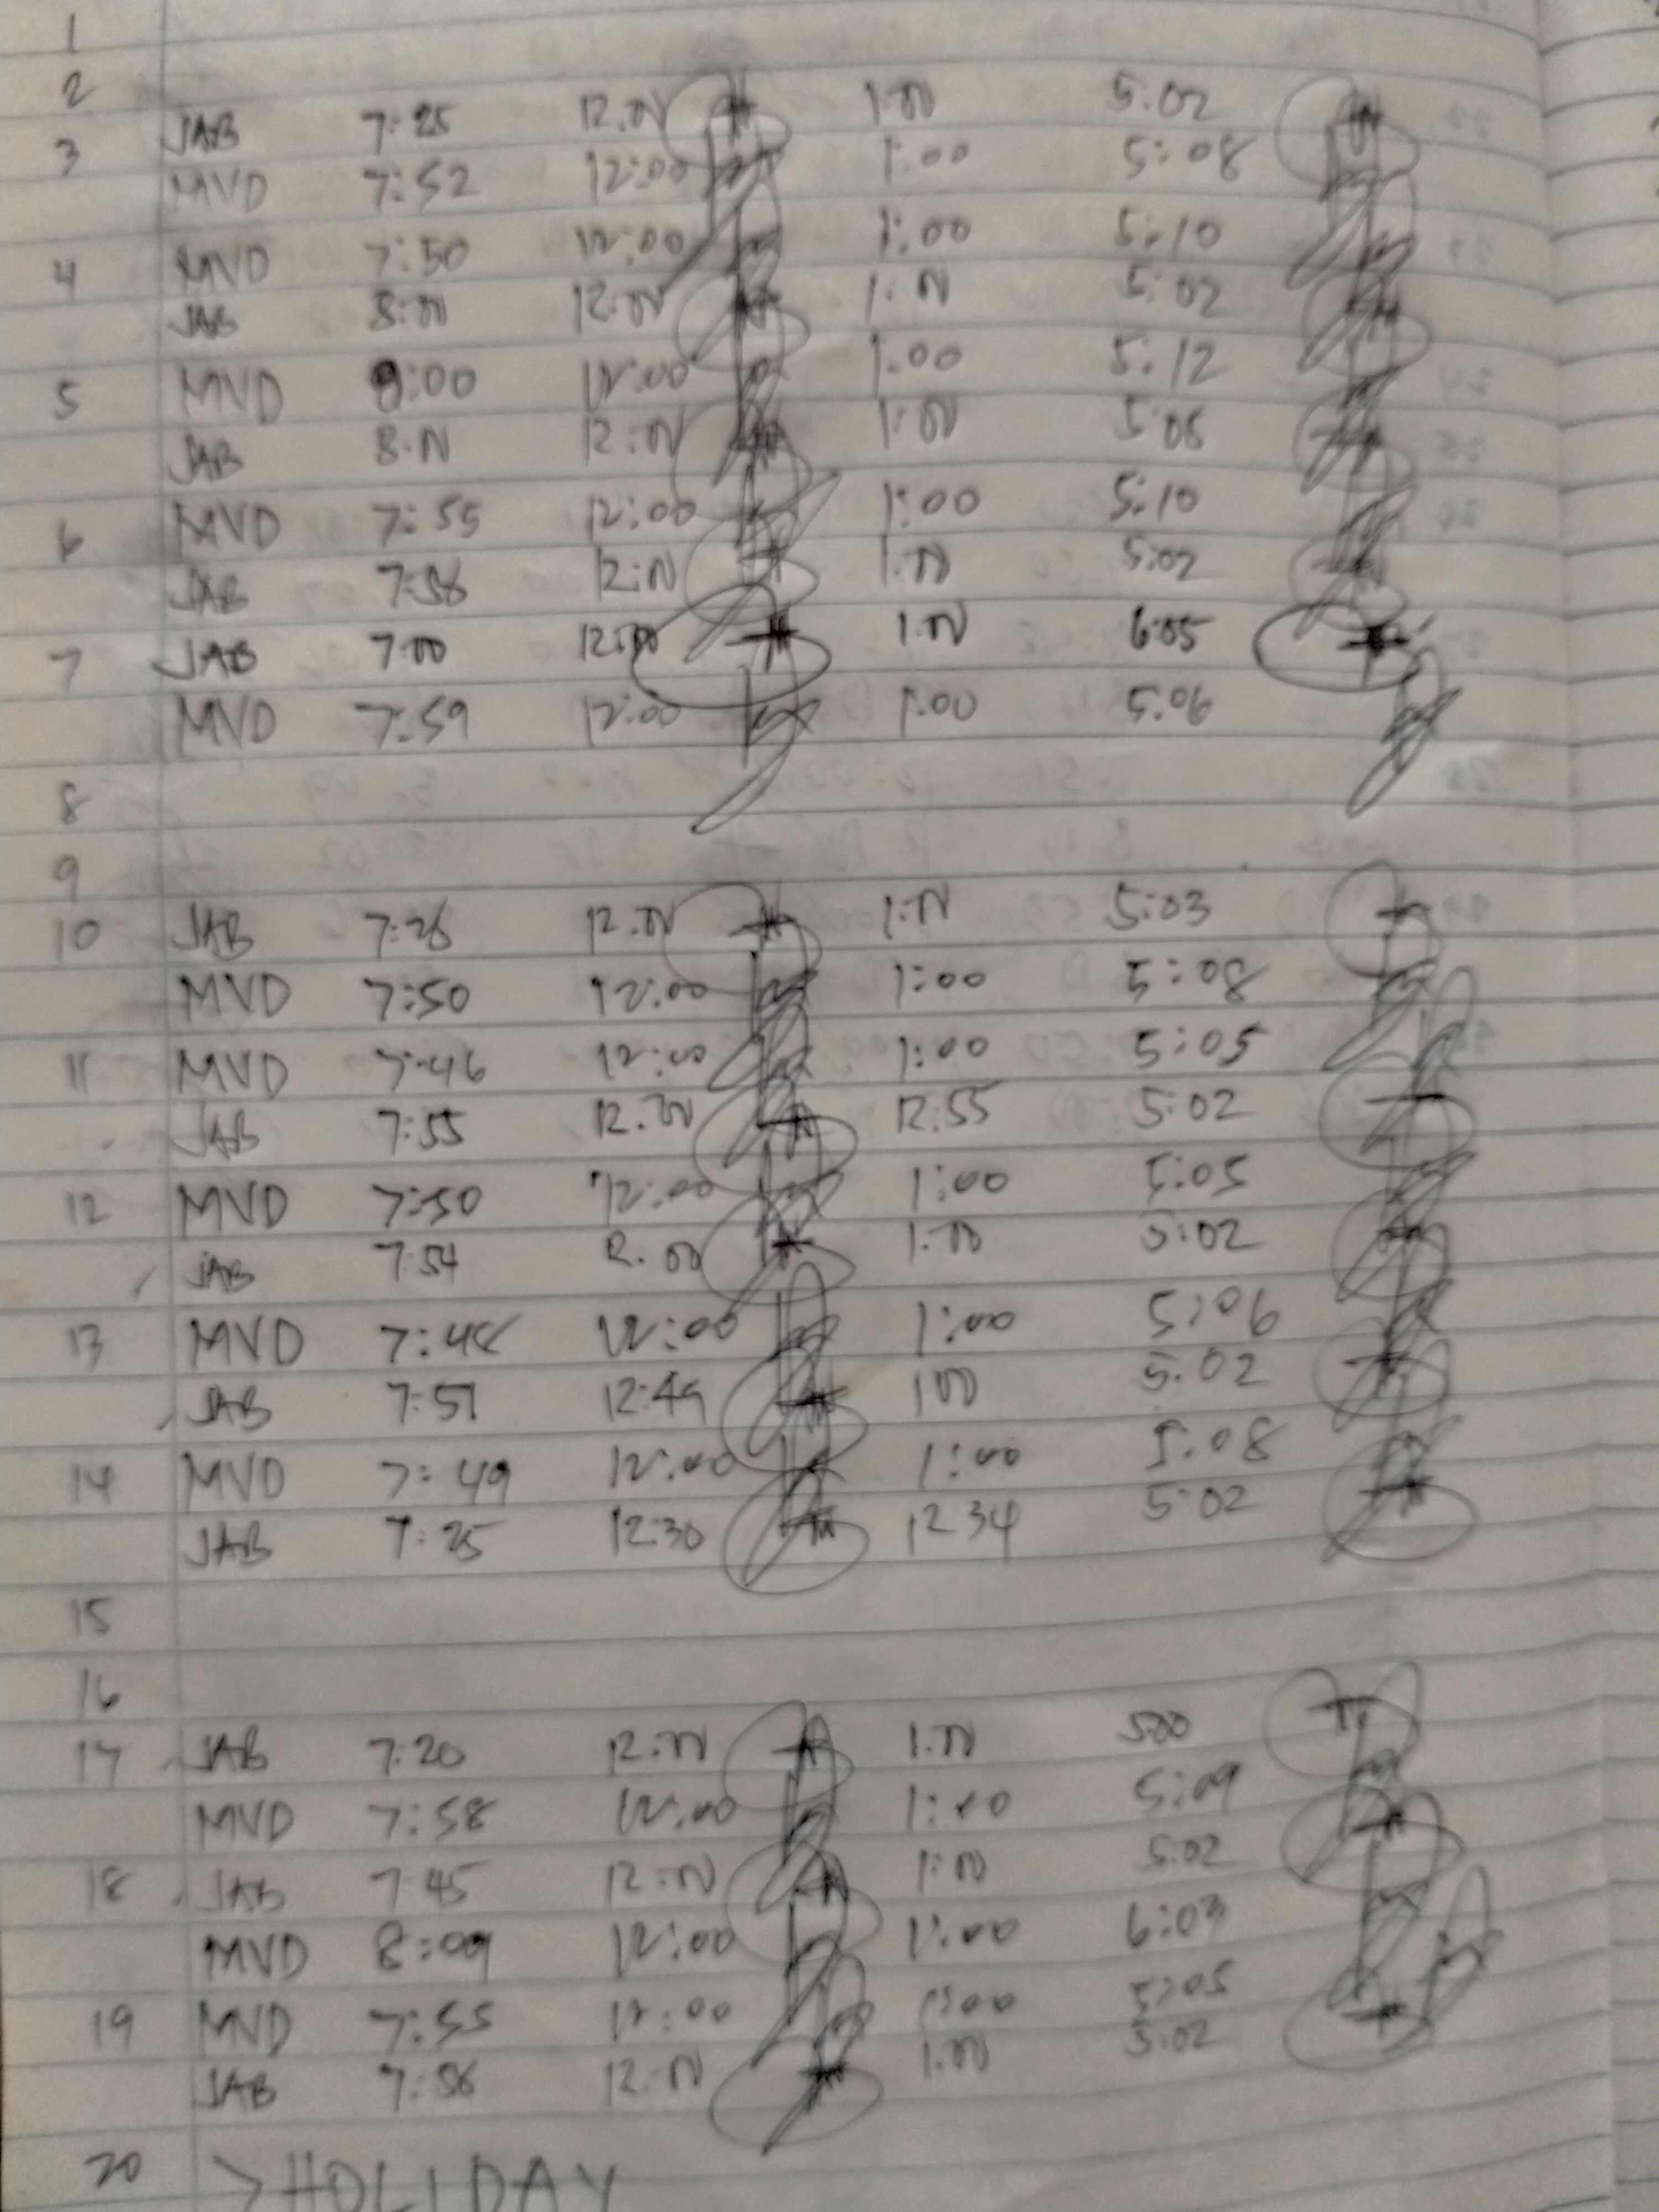 1
2
JAB 7:25 12:00 1:00 5:02
3
MVD 7:52 12:00 1:00 5:08
MVD 7:50 12:00 1:00 5:10
4
JAB 8:00 12:00 1:00 5:02
MVD 8:00 12:00 1:00 5:12
5
JAB 8:00 12:00 1:00 5:05
MVD 7:55 12:00 1:00 5:10
6
JAB 7:58 12:00 1:00 5:02
7 JAB 7:00 12:00 1:00 6:05
MVD 7:59 12:00 1:00 5:06
8
9
10 JAB 7:28 12:00 1:00 5:03
MVD 7:50 12:00 1:00 5:08
11 MVD 7:46 12:00 1:00 5:05
JAB 7:55 12:55 5:02
12 MVD 7:50 12:00 1:00 5:05
JAB 7:54 12:00 1:00 5:02
13 MVD 7:48 12:00 1:00 5:06
JAB 7:57 12:49 1:00 5:02
14 MVD 7:49 12:00 1:00 5:08
JAB 7:25 12:30 12 34 5:02
15
16
17 JAB 7:20 12:00 1:00 5:00
MVD 7:58 12:00 1:00 5:09
18 JAB 7:45 12:00 1:00 5:02
MVD 8:09 12:00 1:00 6:03
19 MVD 7:55 12:00 1:00 5:05
JAB 7:56 12:00 1:00 5:02
20 >HOLIDAY